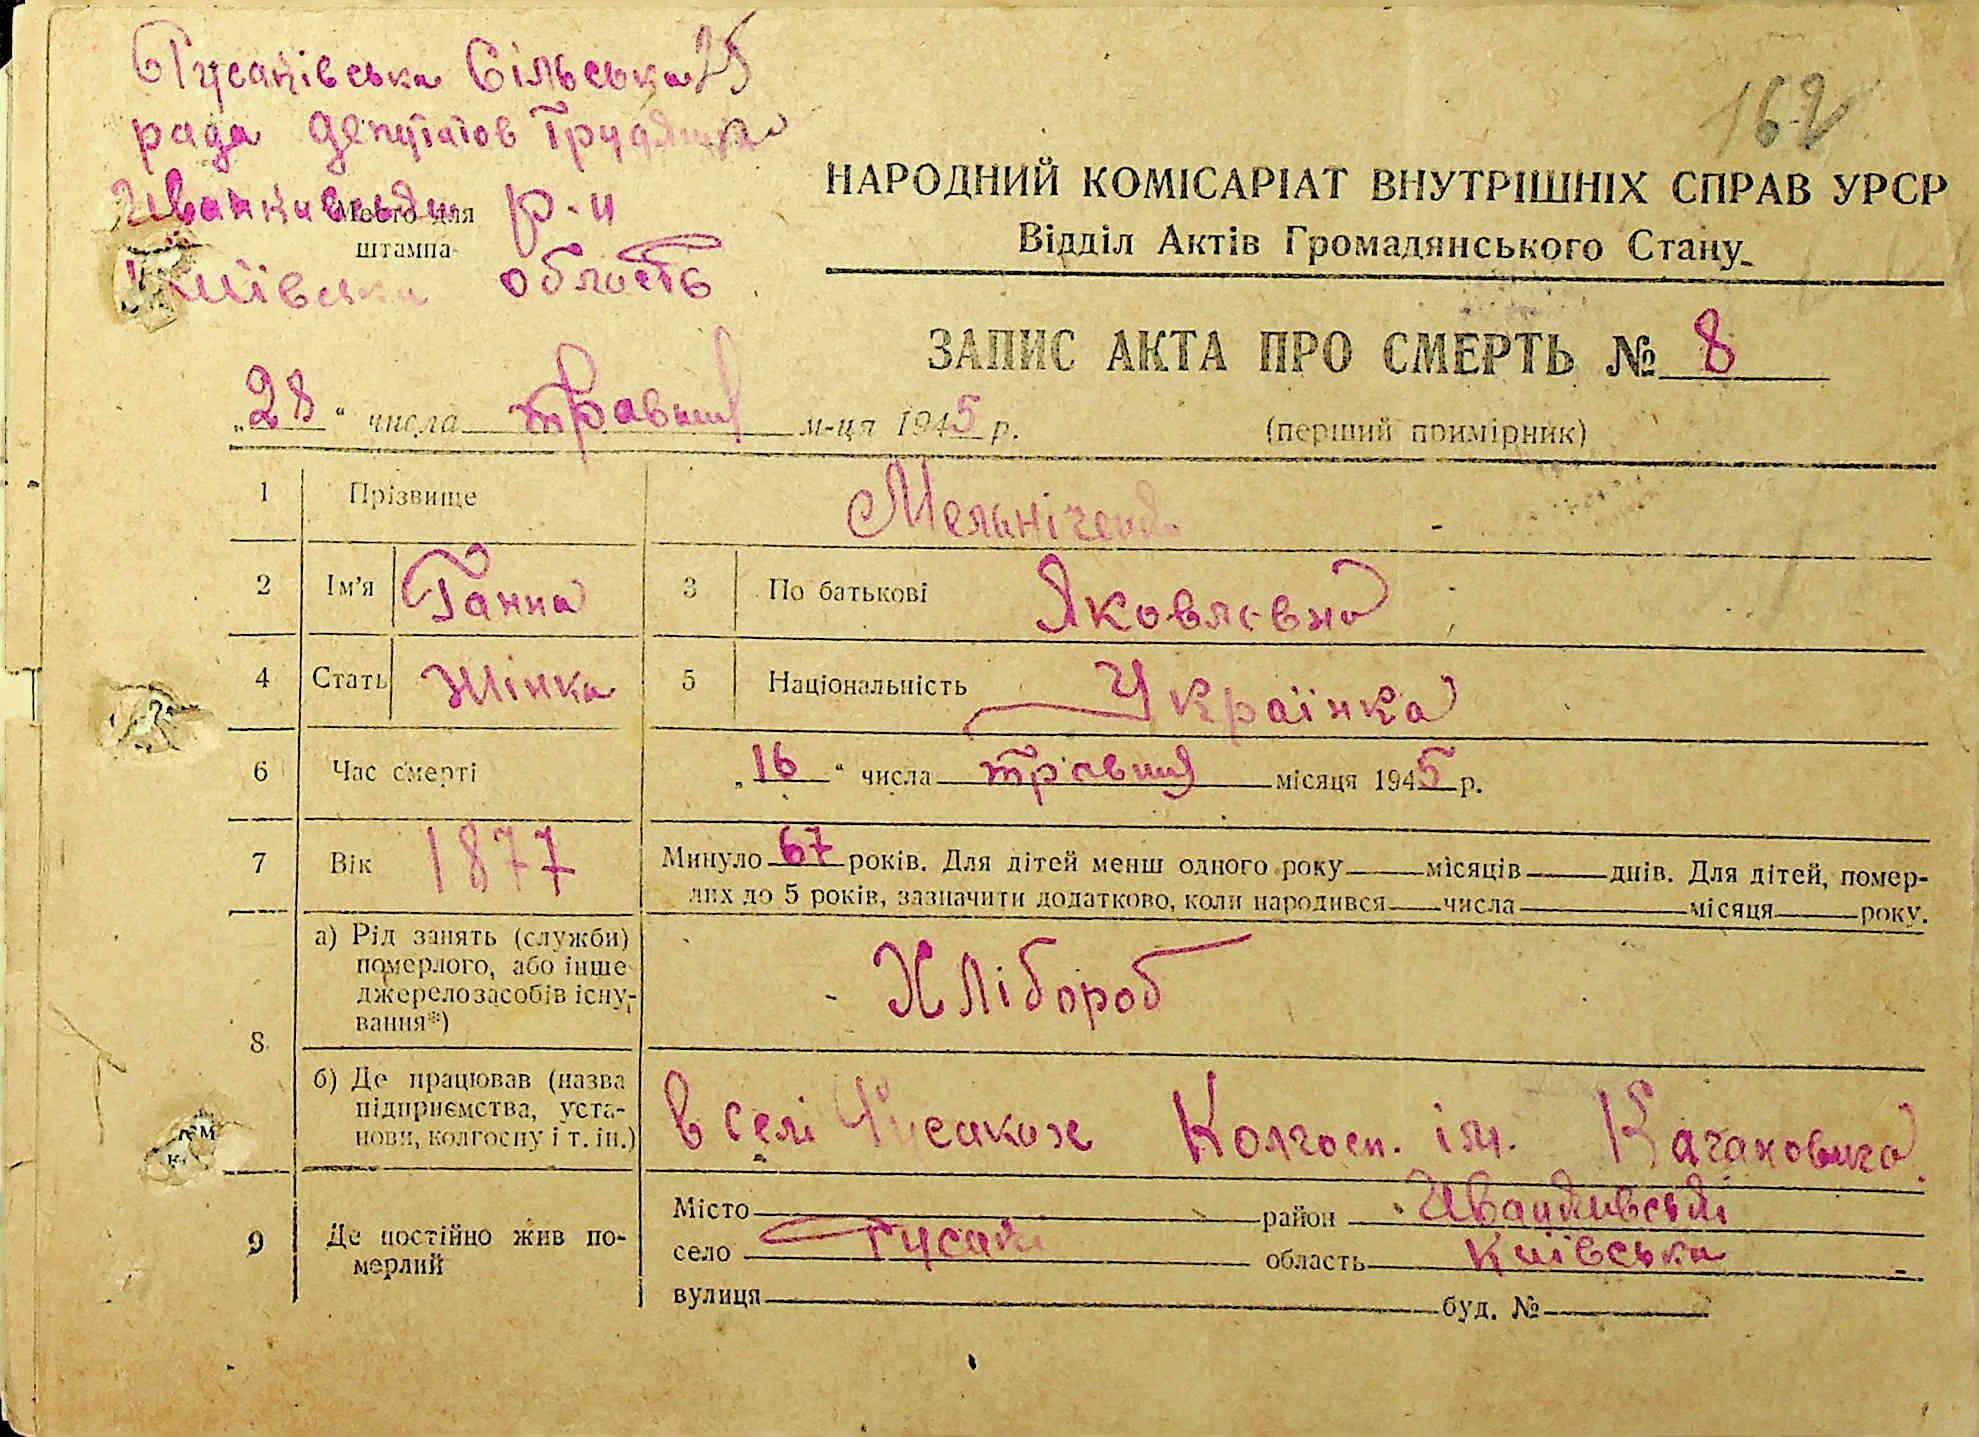 Гусаківська Сільська 25
рада депутатов Трудящих
162
Иванківський р-н
Место для
штампа
Київська область
НАРОДНИЙ КОМІСАРІАТ ВНУТРІШНІХ СПРАВ УРСР
Відділ Актів Громадянського Стану
ЗАПИС АКТА ПРО СМЕРТЬ № 8
„28“ числа травня м-ця 1945 р.
(перший примірник)
1 Прізвище Мельніченко
2 Ім'я Ганна 3 По батькові Яковлевна
4 Стать жінка 5 Національність Українка
6 Час смерті „16“ числа травня місяця 1945 р.
7 Вік 1877 Минуло 67 років. Для дітей менш одного року місяців днів. Для дітей, помер-
лих до 5 років, зазначити додатково, коли народився числа місяця року.
8 а) Рід занять (служби)
померлого, або інше
джерело засобів існу-
вання*)
Хлібороб
б) Де працював (назва
підприємства, уста-
нови, колгоспу і т. ін.)
в селі Колгосп. ім. Кагановича
9 Де постійно жив по-
мерлий
Місто район Иванківський
село Гусаки область Київська
вулиця буд. №